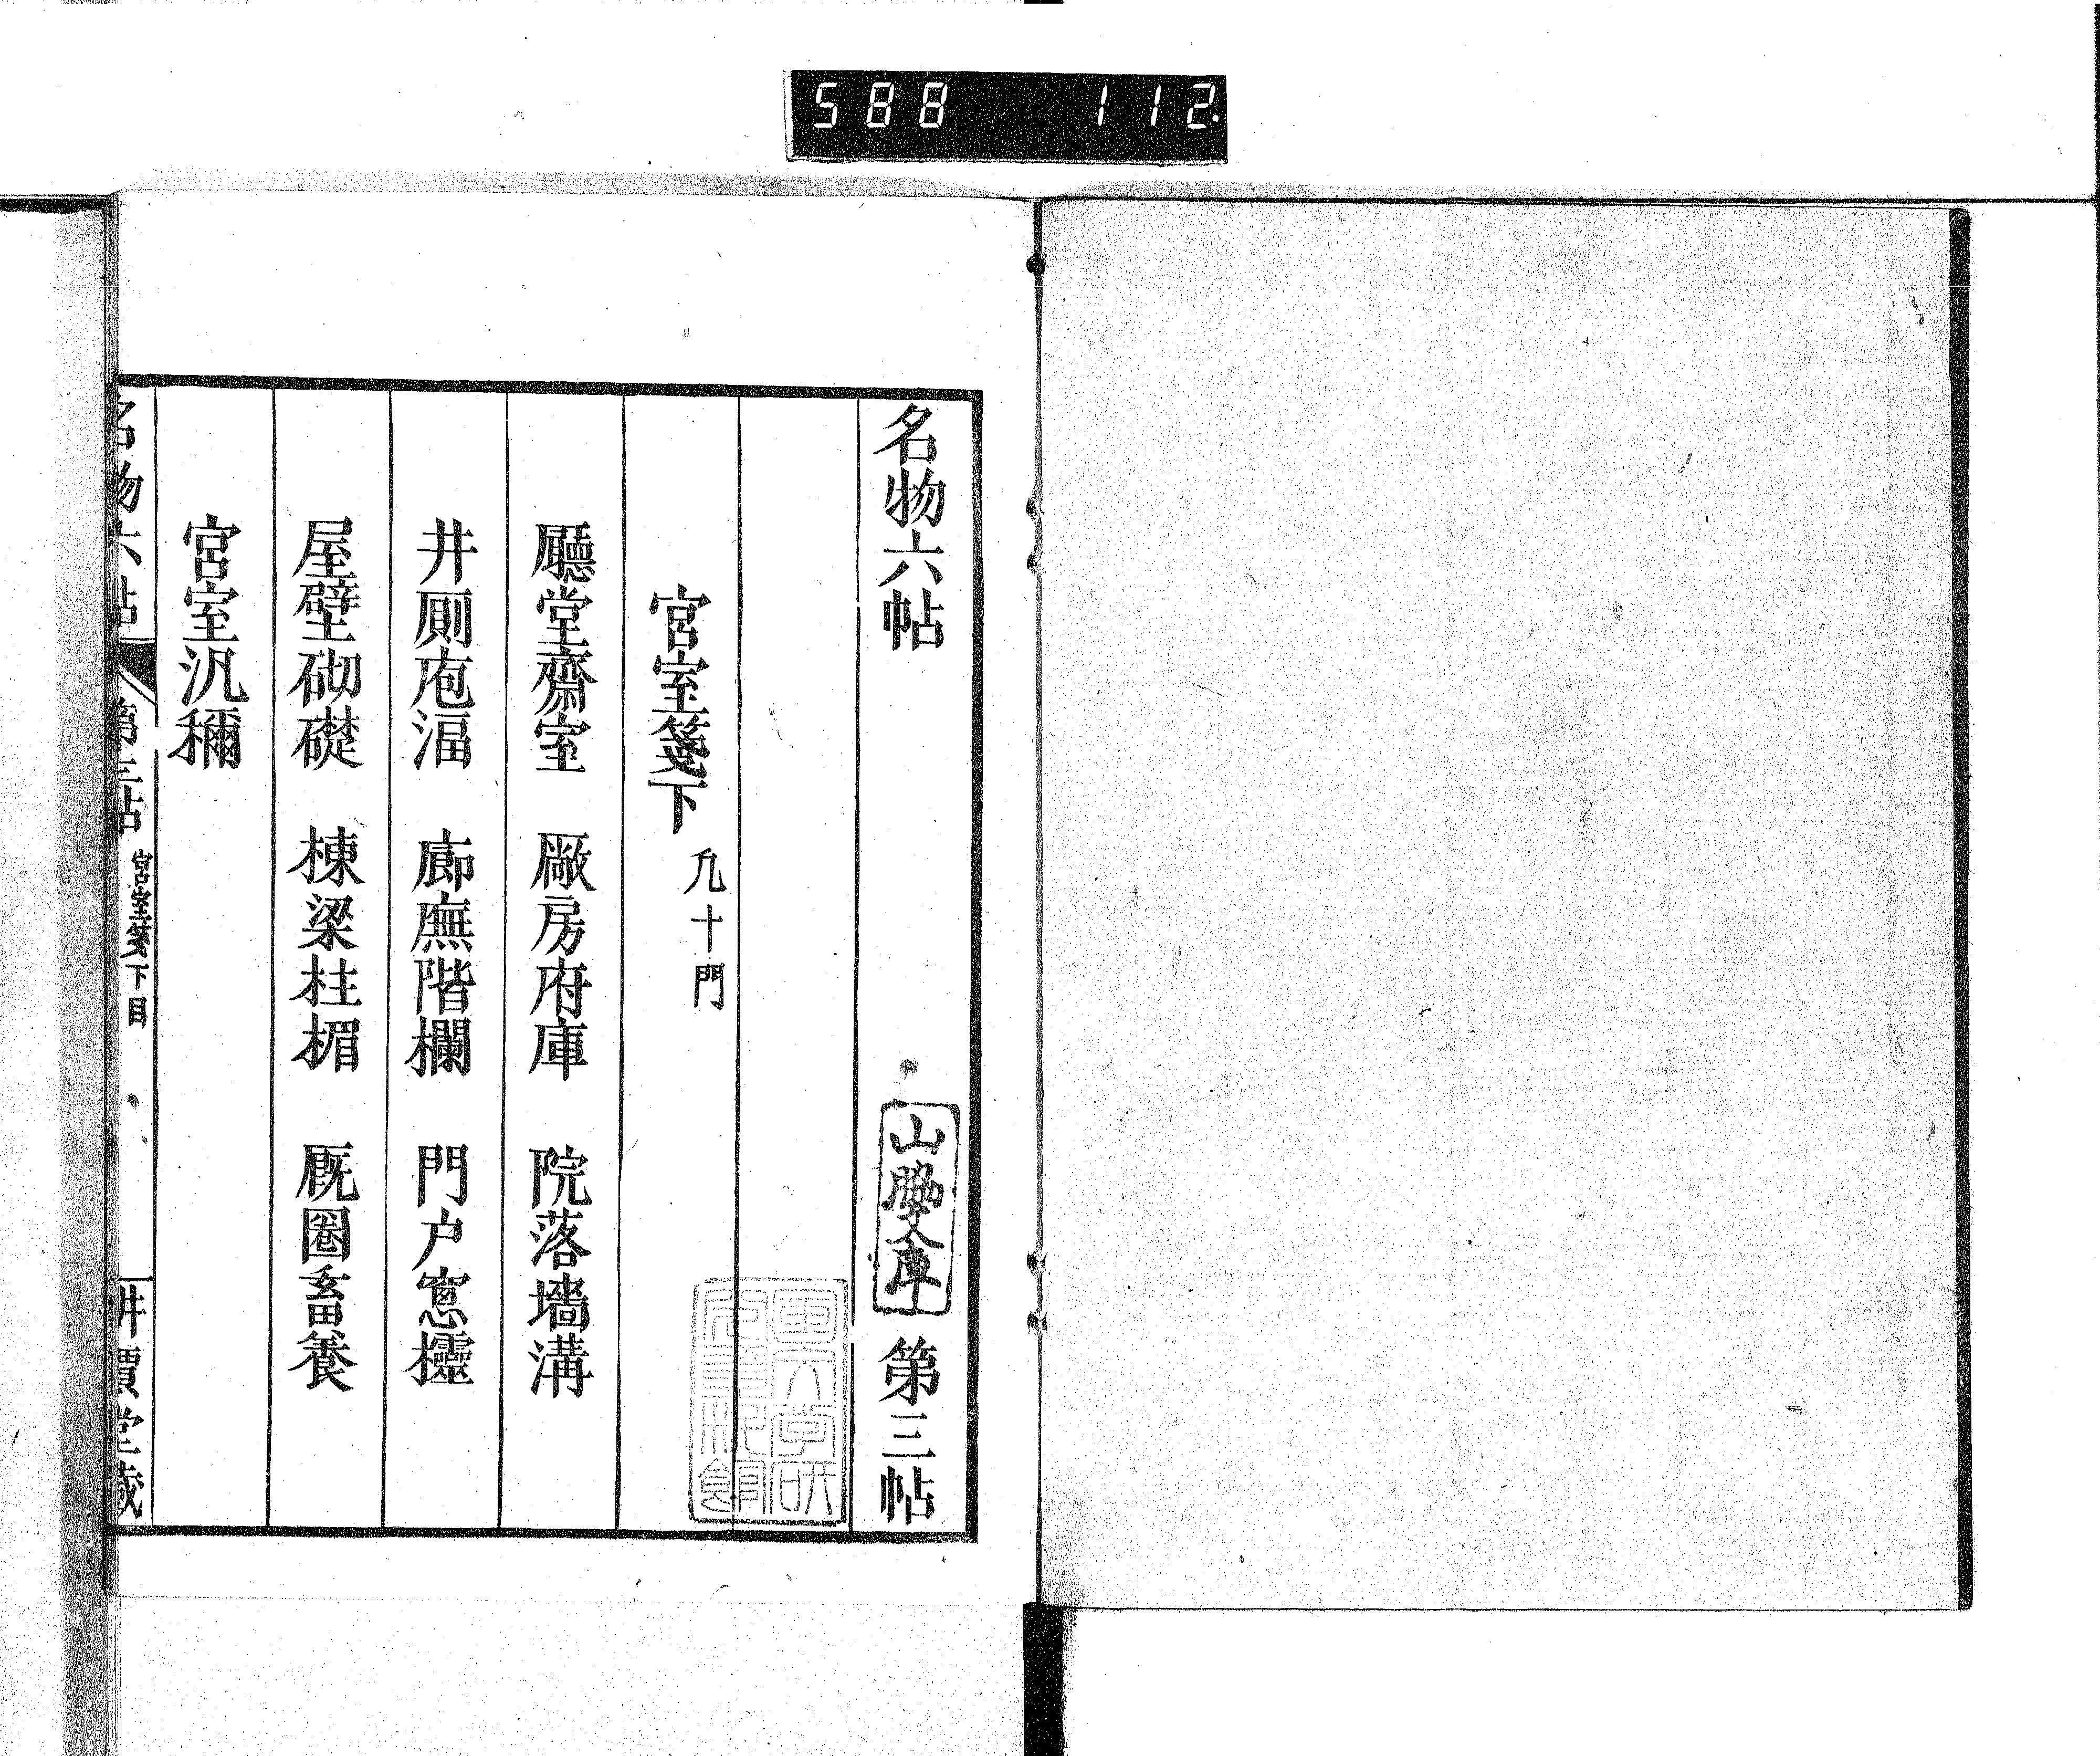 588 112
名物六帖 第三帖
山脇文庫
宮室箋下 凢十門
廳堂齋室 厰房府庫 院落墻溝
井厠庖湢 廊廡階欄 門户窻欞
屋壁砌礎 棟梁柱楣 厩圈畜養
宮室汎稱
名物六帖 第三帖 宮室箋下目